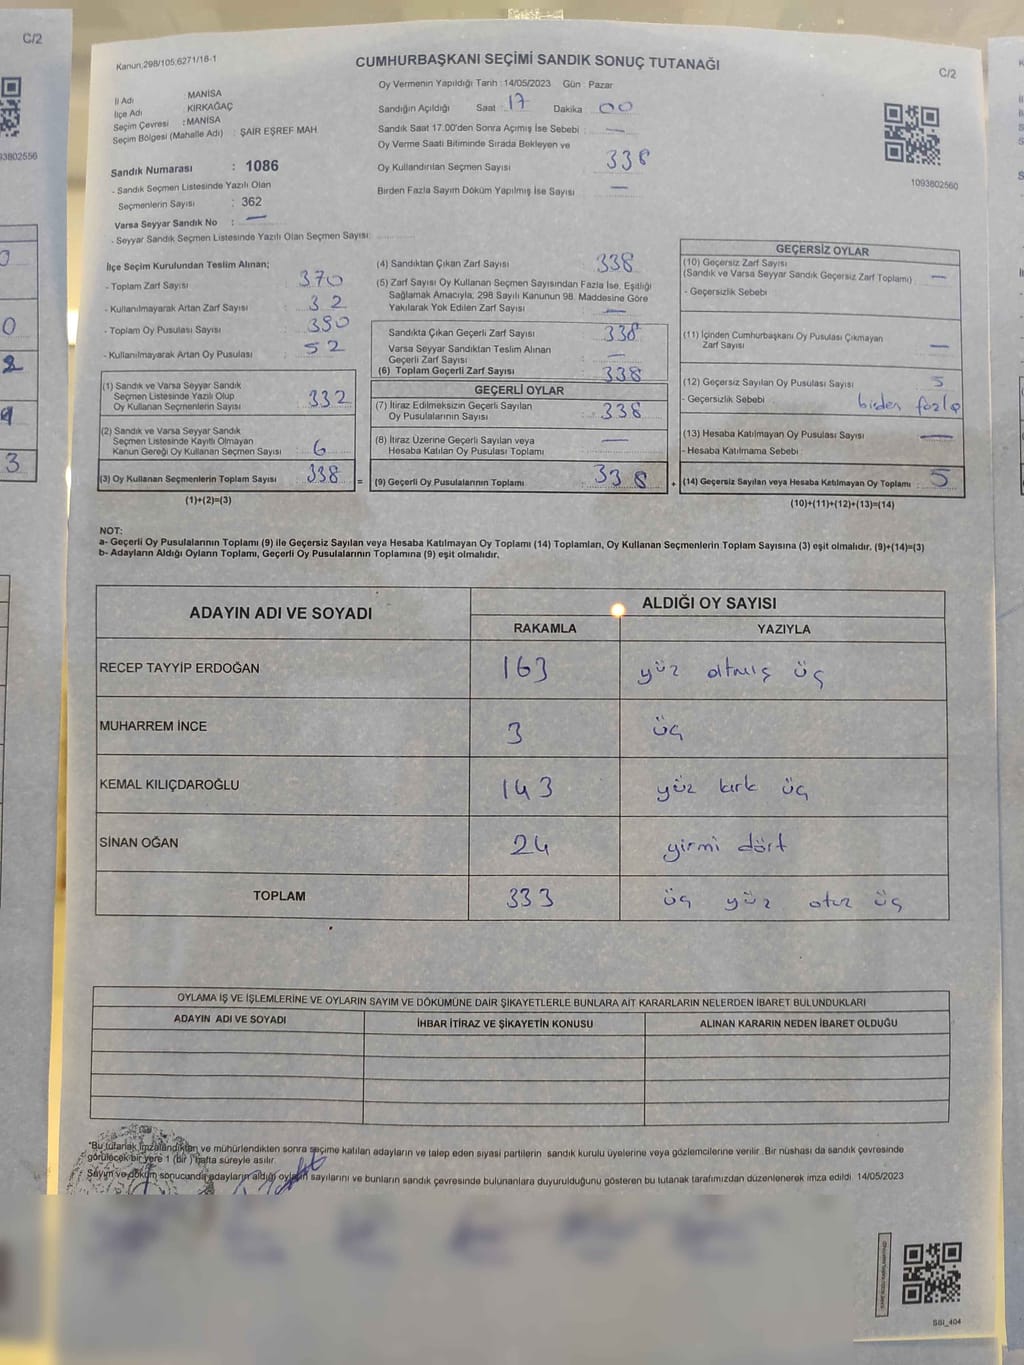 C/2
Kanun,298/105,6271/18-1
CUMHURBAŞKANI SEÇİMİ SANDIK SONUÇ TUTANAĞI
C/2
Oy Vermenin Yapıldığı Tarih : 14/05/2023 Gün : Pazar
İl Adı : MANİSA
İlçe Adı KIRKAĞAÇ
Seçim Çevresi : MANİSA
Seçim Bölgesi (Mahalle Adı) : ŞAİR EŞREF MAH
Sandığın Açıldığı Saat : 17 Dakika 00
Sandık Saat 17.00'den Sonra Açımış İse Sebebi : —
Oy Verme Saati Bitiminde Sırada Bekleyen ve
Oy Kullandırılan Seçmen Sayısı 338
Birden Fazla Sayım Döküm Yapılmış İse Sayısı —
1093802560
93802556
Sandık Numarası : 1086
- Sandık Seçmen Listesinde Yazılı Olan
Seçmenlerin Sayısı : 362
Varsa Seyyar Sandık No : —
- Seyyar Sandık Seçmen Listesinde Yazılı Olan Seçmen Sayısı:
İlçe Seçim Kurulundan Teslim Alınan;
- Toplam Zarf Sayısı : 370
- Kullanılmayarak Artan Zarf Sayısı : 32
- Toplam Oy Pusulası Sayısı :
- Kullanılmayarak Artan Oy Pusulası : 52
(1) Sandık ve Varsa Seyyar Sandık
Seçmen Listesinde Yazılı Olup
Oy Kullanan Seçmenlerin Sayısı : 332
(2) Sandık ve Varsa Seyyar Sandık
Seçmen Listesinde Kayıtlı Olmayan
Kanun Gereği Oy Kullanan Seçmen Sayısı : 6
(3) Oy Kullanan Seçmenlerin Toplam Sayısı : 338 =
(1)+(2)=(3)
(4) Sandıktan Çıkan Zarf Sayısı 338
(5) Zarf Sayısı Oy Kullanan Seçmen Sayısından Fazla İse, Eşitliği
Sağlamak Amacıyla; 298 Sayılı Kanunun 98. Maddesine Göre
Yakılarak Yok Edilen Zarf Sayısı : —
Sandıkta Çıkan Geçerli Zarf Sayısı 338
Varsa Seyyar Sandıktan Teslim Alınan
Geçerli Zarf Sayısı : —
(6) Toplam Geçerli Zarf Sayısı : 338
GEÇERLİ OYLAR
(7) İtiraz Edilmeksizin Geçerli Sayılan
Oy Pusulalarının Sayısı : 338
(8) İtiraz Üzerine Geçerli Sayılan veya
Hesaba Katılan Oy Pusulası Toplamı : —
(9) Geçerli Oy Pusulalarının Toplamı : 338 +
GEÇERSİZ OYLAR
(10) Geçersiz Zarf Sayısı
(Sandık ve Varsa Seyyar Sandık Geçersiz Zarf Toplamı) : —
- Geçersizlik Sebebi
(11) İçinden Cumhurbaşkanı Oy Pusulası Çıkmayan
Zarf Sayısı —
(12) Geçersiz Sayılan Oy Pusulası Sayısı : 5
- Geçersizlik Sebebi birden fazla
(13) Hesaba Katılmayan Oy Pusulası Sayısı : —
- Hesaba Katılmama Sebebi
(14) Geçersiz Sayılan veya Hesaba Katılmayan Oy Toplamı : 5
(10)+(11)+(12)+(13)=(14)
NOT:
a- Geçerli Oy Pusulalarının Toplamı (9) ile Geçersiz Sayılan veya Hesaba Katılmayan Oy Toplamı (14) Toplamları, Oy Kullanan Seçmenlerin Toplam Sayısına (3) eşit olmalıdır. (9)+(14)=(3)
b- Adayların Aldığı Oyların Toplamı, Geçerli Oy Pusulalarının Toplamına (9) eşit olmalıdır.
ADAYIN ADI VE SOYADI
ALDIĞI OY SAYISI
RAKAMLA YAZIYLA
RECEP TAYYİP ERDOĞAN 163 yüz altmış üç
MUHARREM İNCE 3 üç
KEMAL KILIÇDAROĞLU 143 yüz kırk üç
SİNAN OĞAN 24 yirmi dört
TOPLAM 333 üç yüz otuz üç
OYLAMA İŞ VE İŞLEMLERİNE VE OYLARIN SAYIM VE DÖKÜMÜNE DAİR ŞİKAYETLERLE BUNLARA AİT KARARLARIN NELERDEN İBARET BULUNDUKLARI
ADAYIN ADI VE SOYADI İHBAR İTİRAZ VE ŞİKAYETİN KONUSU ALINAN KARARIN NEDEN İBARET OLDUĞU
"Bu tutanak imzalandıktan ve mühürlendikten sonra seçime katılan adayların ve talep eden siyasi partilerin sandık kurulu üyelerine veya gözlemcilerine verilir. Bir nüshası da sandık çevresinde
görülecek bir yere 1 (bir) hafta süreyle asılır.
Sayım ve döküm sonucunda adayların aldığı oyların sayılarını ve bunların sandık çevresinde bulunanlara duyurulduğunu gösteren bu tutanak tarafımızdan düzenlenerek imza edildi. 14/05/2023
SSI_404